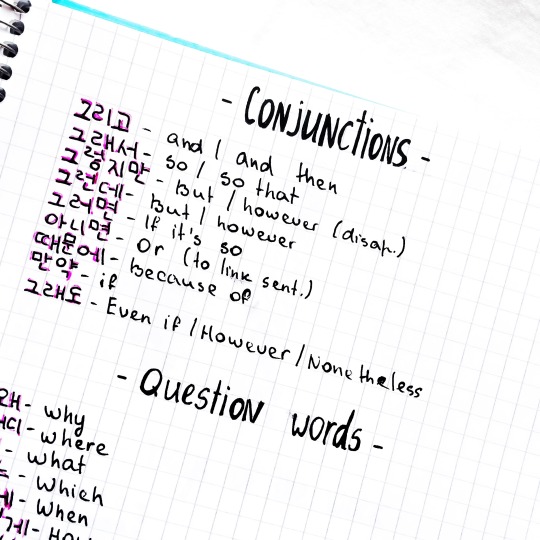 - CONJUNCTIONS -
그리고 - and / and then
그래서 - so / so that
그렇지만 - But / however (disap.)
그런데 - But / however
그러면 - If it's so
아니면 - Or (to link sent.)
때문에 - because of
만약 - if
그래도 - Even if / However / Nonetheless
- Question words -
- why
- where
- what
- which
- when